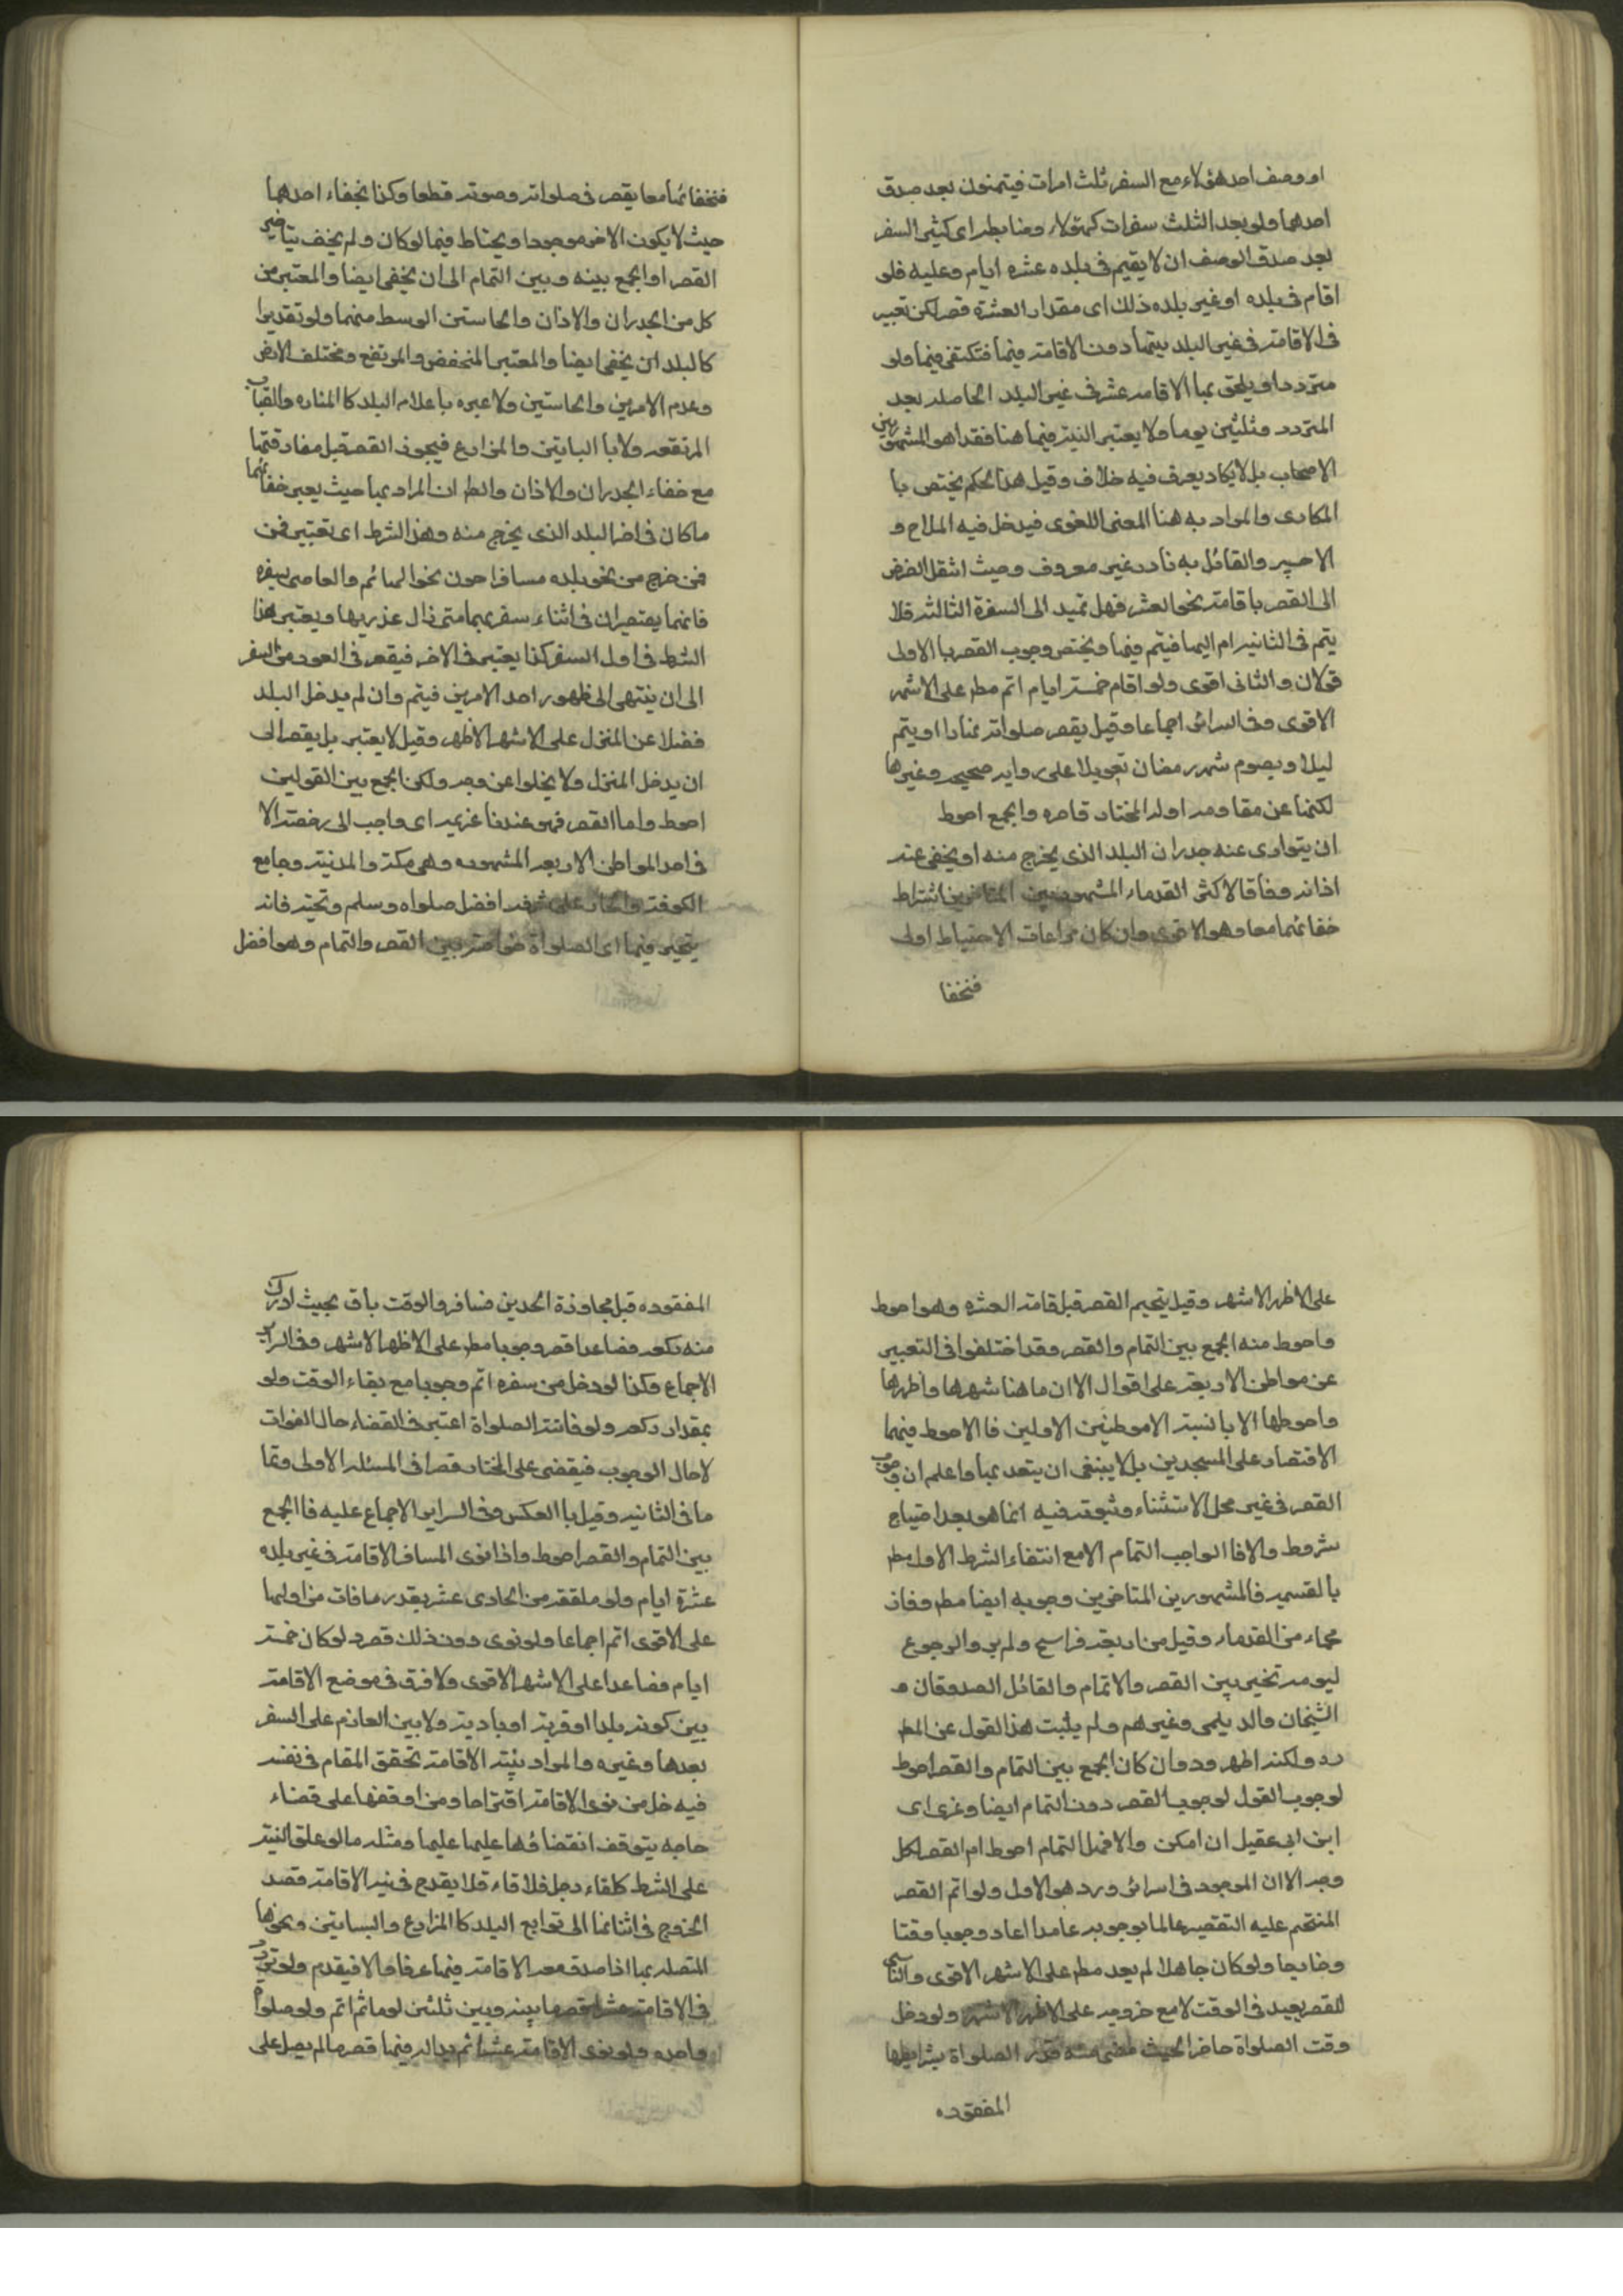 او وصف احد هؤلاء مع السفر ثلث امرات فيتمنون بعد صدق
احدها ولو بعد الثلث سفرات كهؤلاء وضابطه اى كثير السفر
بعد صدق الوصف ان لا يقيم فى بلده عشره ايام وعليه فلو
اقام فى بلده او غير بلده ذلك اى مقدار العشرة قصر لكن تعتبر
فى الاقامة فى غير البلد نيتها دون الاقامة فيها فتكتفى فيها ولو
مترددا ويلحق بها الاقامه عشر فى غير البلد الحاصله بعد
المتردد وثلثين يوما ولا يعتبر النية فيها هنا فقدا هو المشهور بين
الاصحاب بل لا يكاد يعرف فيه خلاف وقيل هذا الحكم يختص با
المكارى والمراد به هنا المعنى اللغوى فيدخل فيه الملاح و
الاجير والقائل به نادر غير معروف وحيث انتقل الفرض
الى القصر باقامة نحو العشر فهل تميد الى السفرة الثالثه فلا
يتم فى الثانيه ام اليها فيتم فيها ويختص وجوب القصر با الاولى
قولان والثانى اقوى ولو اقام خمسة ايام اتم مط على الاشهر
الاقوى وفى السرائر اجماعا وقيل يقصر صلواته نهارا او يتم
ليلا ويصوم شهر رمضان تعويلا على روايه صحيحه وغيرها
لكنها عن مقاومه ادله المختار قاصره والجمع احوط
ان يتوارى عنه جدران البلد الذى يخرج منه او يخفى عنه
اذانه وفاقا لاكثر القدماء المشهور بين المتاخرين اشتراط
خفائهما معا وهو الاقوى وان كان مراعات الاحتياط اولى
فنخفا
فنخفائهما معا يقصر فى صلواته وصومه قطعا وكذا بخفاء احدهما
حيث لا يكون الاخر موجودا ويحتاط فيما لو كان ولم يخف بتاخير
القصر او الجمع بينه وبين التمام الى ان يخفى ايضا والمعتبر من
كل من الجدران والاذان والحاستين الوسط منهما ولو تقديرا
كالبلد ان يخفى ايضا والمعتبر المنخفض والمرتفع ومختلف الارض
وعدم الامرين والحاستين ولا عبره باعلام البلد كا المناره والقباب
المرتفعه ولا با البساتين والمزارع فيجوز القصر قبل مفارقتها
مع خفاء الجدران والاذان والظ ان المراد بها حيث يعبر خفائهما
ما كان فى اخر البلد الذى يخرج منه وهذا الشرط اى تعتبر فمن
فمن خرج من نحو بلده مسافرا دون نحو الهائم والعاصى بسفره
فانهما يقصران فى اثناء سفرهما متى زال عذريهما ويعتبر هذا
الشرط فى اول السفر كذا يعتبر فى الاخر فيقصر فى العود من السفر
الى ان ينتهى الى ظهور احد الامرين فيتم وان لم يدخل البلد
فضلا عن المنزل على الاشهر الاظهر وقيل لا يعتبر بل يقصر الى
ان يدخل المنزل ولا يخلوا عن وجه ولكن الجمع بين القولين
احوط واما القصر فهو عندنا عزيمه اى واجب الى رخصته الا
فى احد المواطن الاربعه المشهوده وهى مكة والمدنية وجامع
الكوفة والحائر على شرفه افضل صلواه وسلم وتحيته فانه
يتخير فيها اى الصلواة خواصه بين القصر والتمام وهو افضل
على الاظهر الاشهر وقيل يتحيم القصر قبل قامة العشره وهو احوط
واحوط منه الجمع بين التمام والقصر وقد اختلفوا فى التعبير
عن مواطن الاربعة على اقوال الا ان ما هنا شهرها واظهرها
واحوطها الا با لنسبة الا موطنين الاولين فا الاحوط فيهما
الاقتصار على المسجدين بل لا ينبغى ان يتعد بها واعلم ان وجوب
القصر فى غير محل الاستثناء وثبوته فيه انما هو بعد اجتماع
شروط والا فا الواجب التمام الا مع انتفاء الشرط الاول مط
بالقسمه فالمشهور بين المتاخرين وجوبه ايضا مط وفاقا
جماء من القدماء وقيل من اربعة فراسخ ولم يرد الرجوع
ليومه تخير بين القصر والاتمام والقائل الصدوقان و
الشيخان والديلمى وغيرهم ولم يثبت هذا القول عن المط
رد ولكنه اظهر ورد وان كان الجمع بين التمام والقصر احوط
لوجوب القول لوجوب القصر دون التمام ايضا وعزى اى
ابن ابى عقيل ان امكن والا فهل التمام احوط ام القصر لكل
وجه الا ان الموجود فى السرائر ورد هو الاول ولو اتم القصر
المتحتم عليه التقصير عالما بوجوبه عامدا اعاد وجوبا وقتا
وخارجا ولو كان جاهلا لم يعد مط على الاشهر الاقوى والناسى
للقصر يعيد فى الوقت لا مع خروجه على الاظهر الاشهر ولو دخل
وقت الصلواة حاضرا بحيث مضى منه قدر الصلواة بشرايطها
المفقوده
المفقوده قبل مجاوزة الحدين فسافر والوقت باق بحيث ادرك
منه ركعه فصاعدا قصر وجوبا مط على الاظهر الاشهر وفى السرائر
الاجماع وكذا لو دخل من سفره اتم وجوبا مع بقاء الوقت ولو
بمقدار ركعه ولو فاتته الصلواة اعتبر فى القضاء حال الفوات
لا حال الوجوب فيقضى على المختار قصرا فى المسئله الاولى وتما
ما فى الثانيه وقيل با العكس وفى السراير الاجماع عليه فا الجمع
بين التمام والقصر احوط واذا نوى المسافر الاقامة فى غير بلده
عشرة ايام ولو ملفقة من الحادى عشر بقدر ما فات من اولها
على الاقوى اتم اجماعا ولو نوى دون ذلك قصر ولو كان خمسة
ايام فصاعدا على الاشهر الاقوى ولا فرق فى موضع الاقامة
بين كونه بلدا او قرية او بادية ولا بين العازم على السفر
بعدها وغيره والمراد بنية الاقامة تحقق المقام فى نفسه
فيدخل من نوى الاقامة اقتراحا ومن اوقفها على قضاء
حاجه يتوقف انقضاؤها عليها عليها ومثله ما لو علق النية
على الشرط كلقاء رجل فلاقاه فلا يقدح فى نية الاقامة قصد
الخروج فى اثنائها الى توابع البلد كا المزارع والبساتين ونحوها
المتصله بها اذا صدق معه الاقامة فيها عرفا والا فيقدم ولو تردد
فى الاقامة عشرا قصر ما بينه وبين ثلثين يوما ثم اتم ولو صلواة
واحده ولو نوى الاقامة عشرا ثم بدا له فيها قصر ما لم يصل على